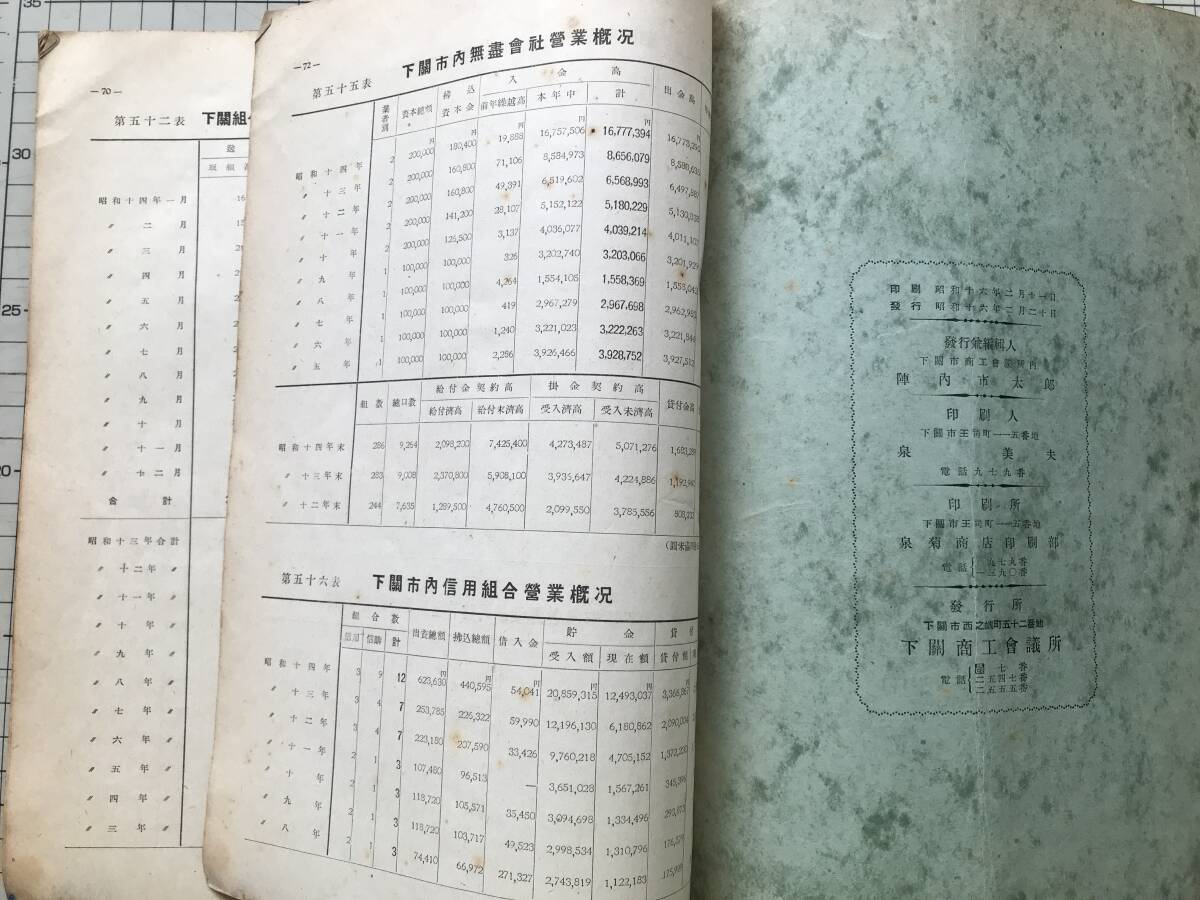 35
30
25
20
—70—
第五十二表 下關組合
現組高
昭和十四年一月
〃 二月
〃 三月
〃 四月
〃 五月
〃 六月
〃 七月
〃 八月
〃 九月
〃 十月
〃 十一月
〃 十二月
合計
昭和十三年合計
〃 十二年 〃
〃 十一年 〃
〃 十年 〃
〃 九年 〃
〃 八年 〃
〃 七年 〃
〃 六年 〃
〃 五年 〃
〃 四年 〃
〃 三年 〃
—72—
第五十五表 下關市內無盡會社營業槪况
業者別 資本總額 拂込資本金 入金高 出金高
前年繰越高 本年中 計
円 円 円 円 円 円
昭和十四年 2 200,000 180,400 19,888 16,757,506 16,777,394
〃 十三年 2 200,000 160,800 71,106 8,584,973 8,656,079
〃 十二年 2 200,000 160,800 49,391 6,519,602 6,568,993
〃 十一年 2 200,000 141,200 28,107 5,152,122 5,180,229
〃 十年 2 200,000 125,500 3,137 4,036,077 4,039,214
〃 九年 1 100,000 100,000 326 3,202,740 3,203,066
〃 八年 1 100,000 100,000 4,264 1,554,105 1,558,369
〃 七年 1 100,000 100,000 419 2,967,279 2,967,698
〃 六年 1 100,000 100,000 1,240 3,221,023 3,222,263
〃 五年 1 100,000 100,000 2,286 3,926,466 3,928,752
組數 總口數 給付金契約高 掛金契約高 貸付金高
給付濟高 給付未濟高 受入濟高 受入未濟高
昭和十四年末 286 9,264 2,098,200 7,425,400 4,273,487 5,071,276
〃 十三年末 283 9,008 2,370,800 5,908,100 3,935,647 4,224,886
〃 十二年末 244 7,635 1,289,500 4,760,500 2,099,550 3,785,556
第五十六表 下關市內信用組合營業槪况
組合數 出資總額 拂込總額 借入金 貯金 貸付
信用 信購 計 受入額 現在額 貸付額
円 円 円 円 円 円
昭和十四年 3 9 12 623,630 440,595 54,041 20,859,315 12,493,037
〃 十三年 3 4 7 253,785 226,322 59,990 12,196,130 6,180,862 2,090,004
〃 十二年 3 4 7 223,180 207,590 33,426 9,760,218 4,705,152 1,372,230
〃 十一年 2 1 3 107,480 96,513 — 3,651,028 1,567,261 345,396
〃 十年 2 1 3 118,720 105,571 35,450 3,094,698 1,334,496
〃 九年 2 1 3 118,720 103,717 49,523 2,998,534 1,310,796
〃 八年 2 1 3 74,410 66,972 271,327 2,743,819 1,122,183
印刷 昭和十六年二月十一日
發行 昭和十六年二月二十日
發行兼編輯人
下關市商工會議所內
陣內市太郞
印刷人
下關市王司町一一五番地
泉美夫
電話九七九番
印刷所
下關市王司町一一五番地
泉菊商店印刷部
電話 九七九番
一三九〇番
發行所
下關市西之端町五十二番地
下關商工會議所
電話 七番
二五四七番
二五五五番